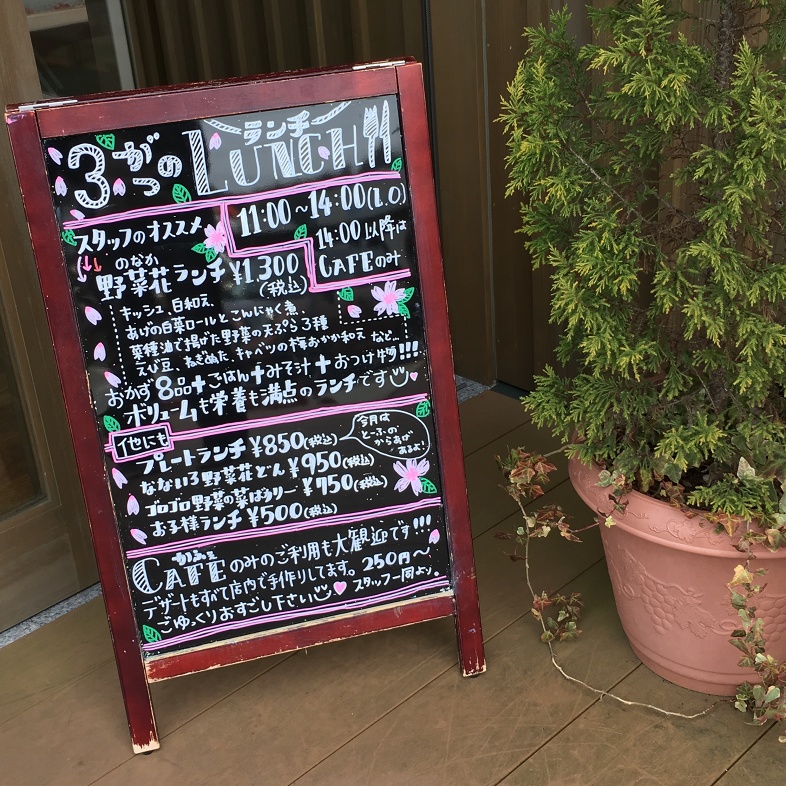 3がつのLUNCH
ランチ
11:00~14:00(L.O)
14:00以降は
CAFEのみ
スタッフのオススメ
のなか
野菜花ランチ¥1300
(税込)
キッシュ、白和え、
あげの白菜ロールとこんにゃく煮、
菜種油で揚げた野菜の天ぷら3種
えび豆、ねぎぬた、キャベツの梅おかか和え など…
おかず8品+ごはん+みそ汁+おつけ物!!!
ボリュームも栄養も満点のランチです
他にも
プレートランチ¥850(税込)
今月は
とーふの
からあげ
あるよ!
なないろ野菜花どん¥950(税込)
ゴロゴロ野菜の菜ばカリー¥750(税込)
お子様ランチ¥500(税込)
かふぇ
CAFEのみのご利用も大歓迎です!!!
デザートもすべて店内で手作りしてます。250円~
ごゆっくりおすごし下さい
スタッフ一同より。